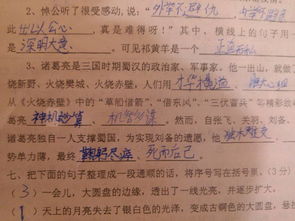 2、悼公听了很受感动,说:“外举不避仇,内举不避亲
此出以公心,真是难得呀!”其中,横线上的句子用一
是深明大义。可见祁黄羊是一个正直无私
3、诸葛亮是三国时期蜀汉的政治家、军事家。他一出山,就
烧新野、火烧樊城、火烧赤壁,人们用
从《火烧赤壁》中的“草船借箭”、“借东风”、“三伏
亮神机妙算、机智多谋。然而,自张飞、关羽、刘备、
诸葛亮独自一人支撑蜀国,为实现刘备的遗愿,他独木难支
势单力薄,最终鞠躬尽瘁,死而后已。
七、把下面的句子整理成一段通顺的话,将序号写在括号里。(3分)
(3)一会儿,大圆盘的边缘,透出了一线光亮,并逐步扩大。
(1)天上的月亮失去了银白色的光泽,变成古铜色的大圆盘,